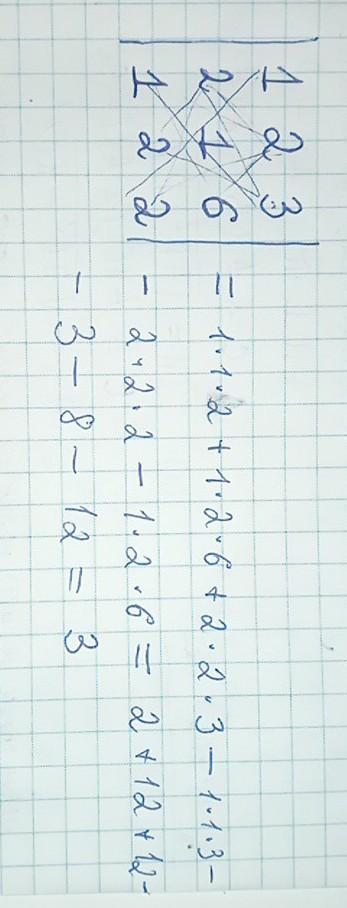 | 1 2 3 |
| 2 1 6 | = 1·1·2 + 1·2·6 + 2·2·3 − 1·1·3 −
| 1 2 2 | − 2·2·2 − 1·2·6 = 2 + 12 + 12 -
− 3 − 8 − 12 = 3